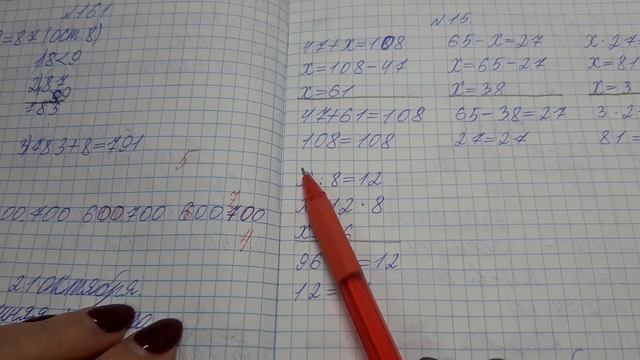 №161
=87(ост.8)
18<9
287
783
3)783+8=791
5
00.700 600.700 600.700
7
4
21 октября
№15.
47+x=108
x=108-47
x=61
47+61=108
108=108
65-x=27
x=65-27
x=38
65-38=27
27=27
x·27
x=81
x=3
3·2
81=
:8=12
12·8
96 =12
12=